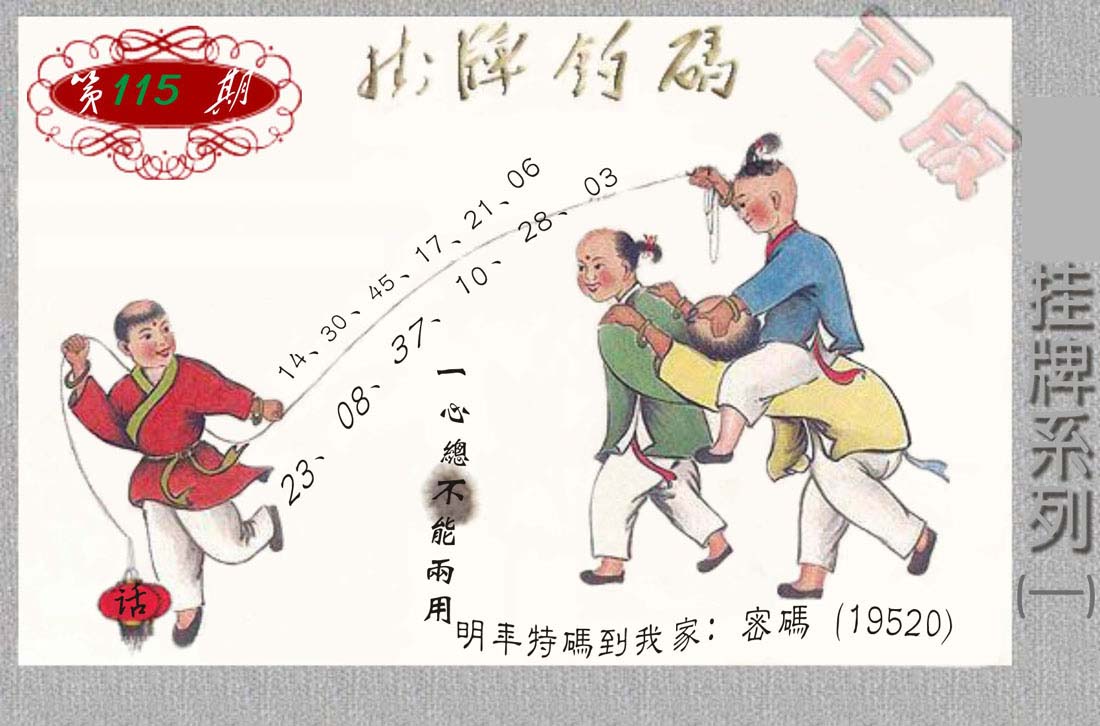 第115期
挂牌钓碼
正版
14、30、45、17、21、06
23、08、37、10、28、03
一心總不能兩用
话
明年特碼到我家：密碼（19520）
挂牌系列(一)